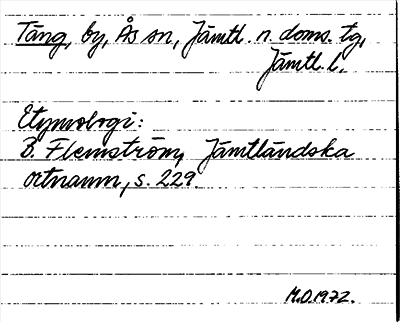 Täng, by, Ås sn, Jämtl. n. doms. tg,
Jämtl. l.
Etymologi:
B. Flemström, Jämtländska
ortnamn, s. 229.
M.O. 1972.